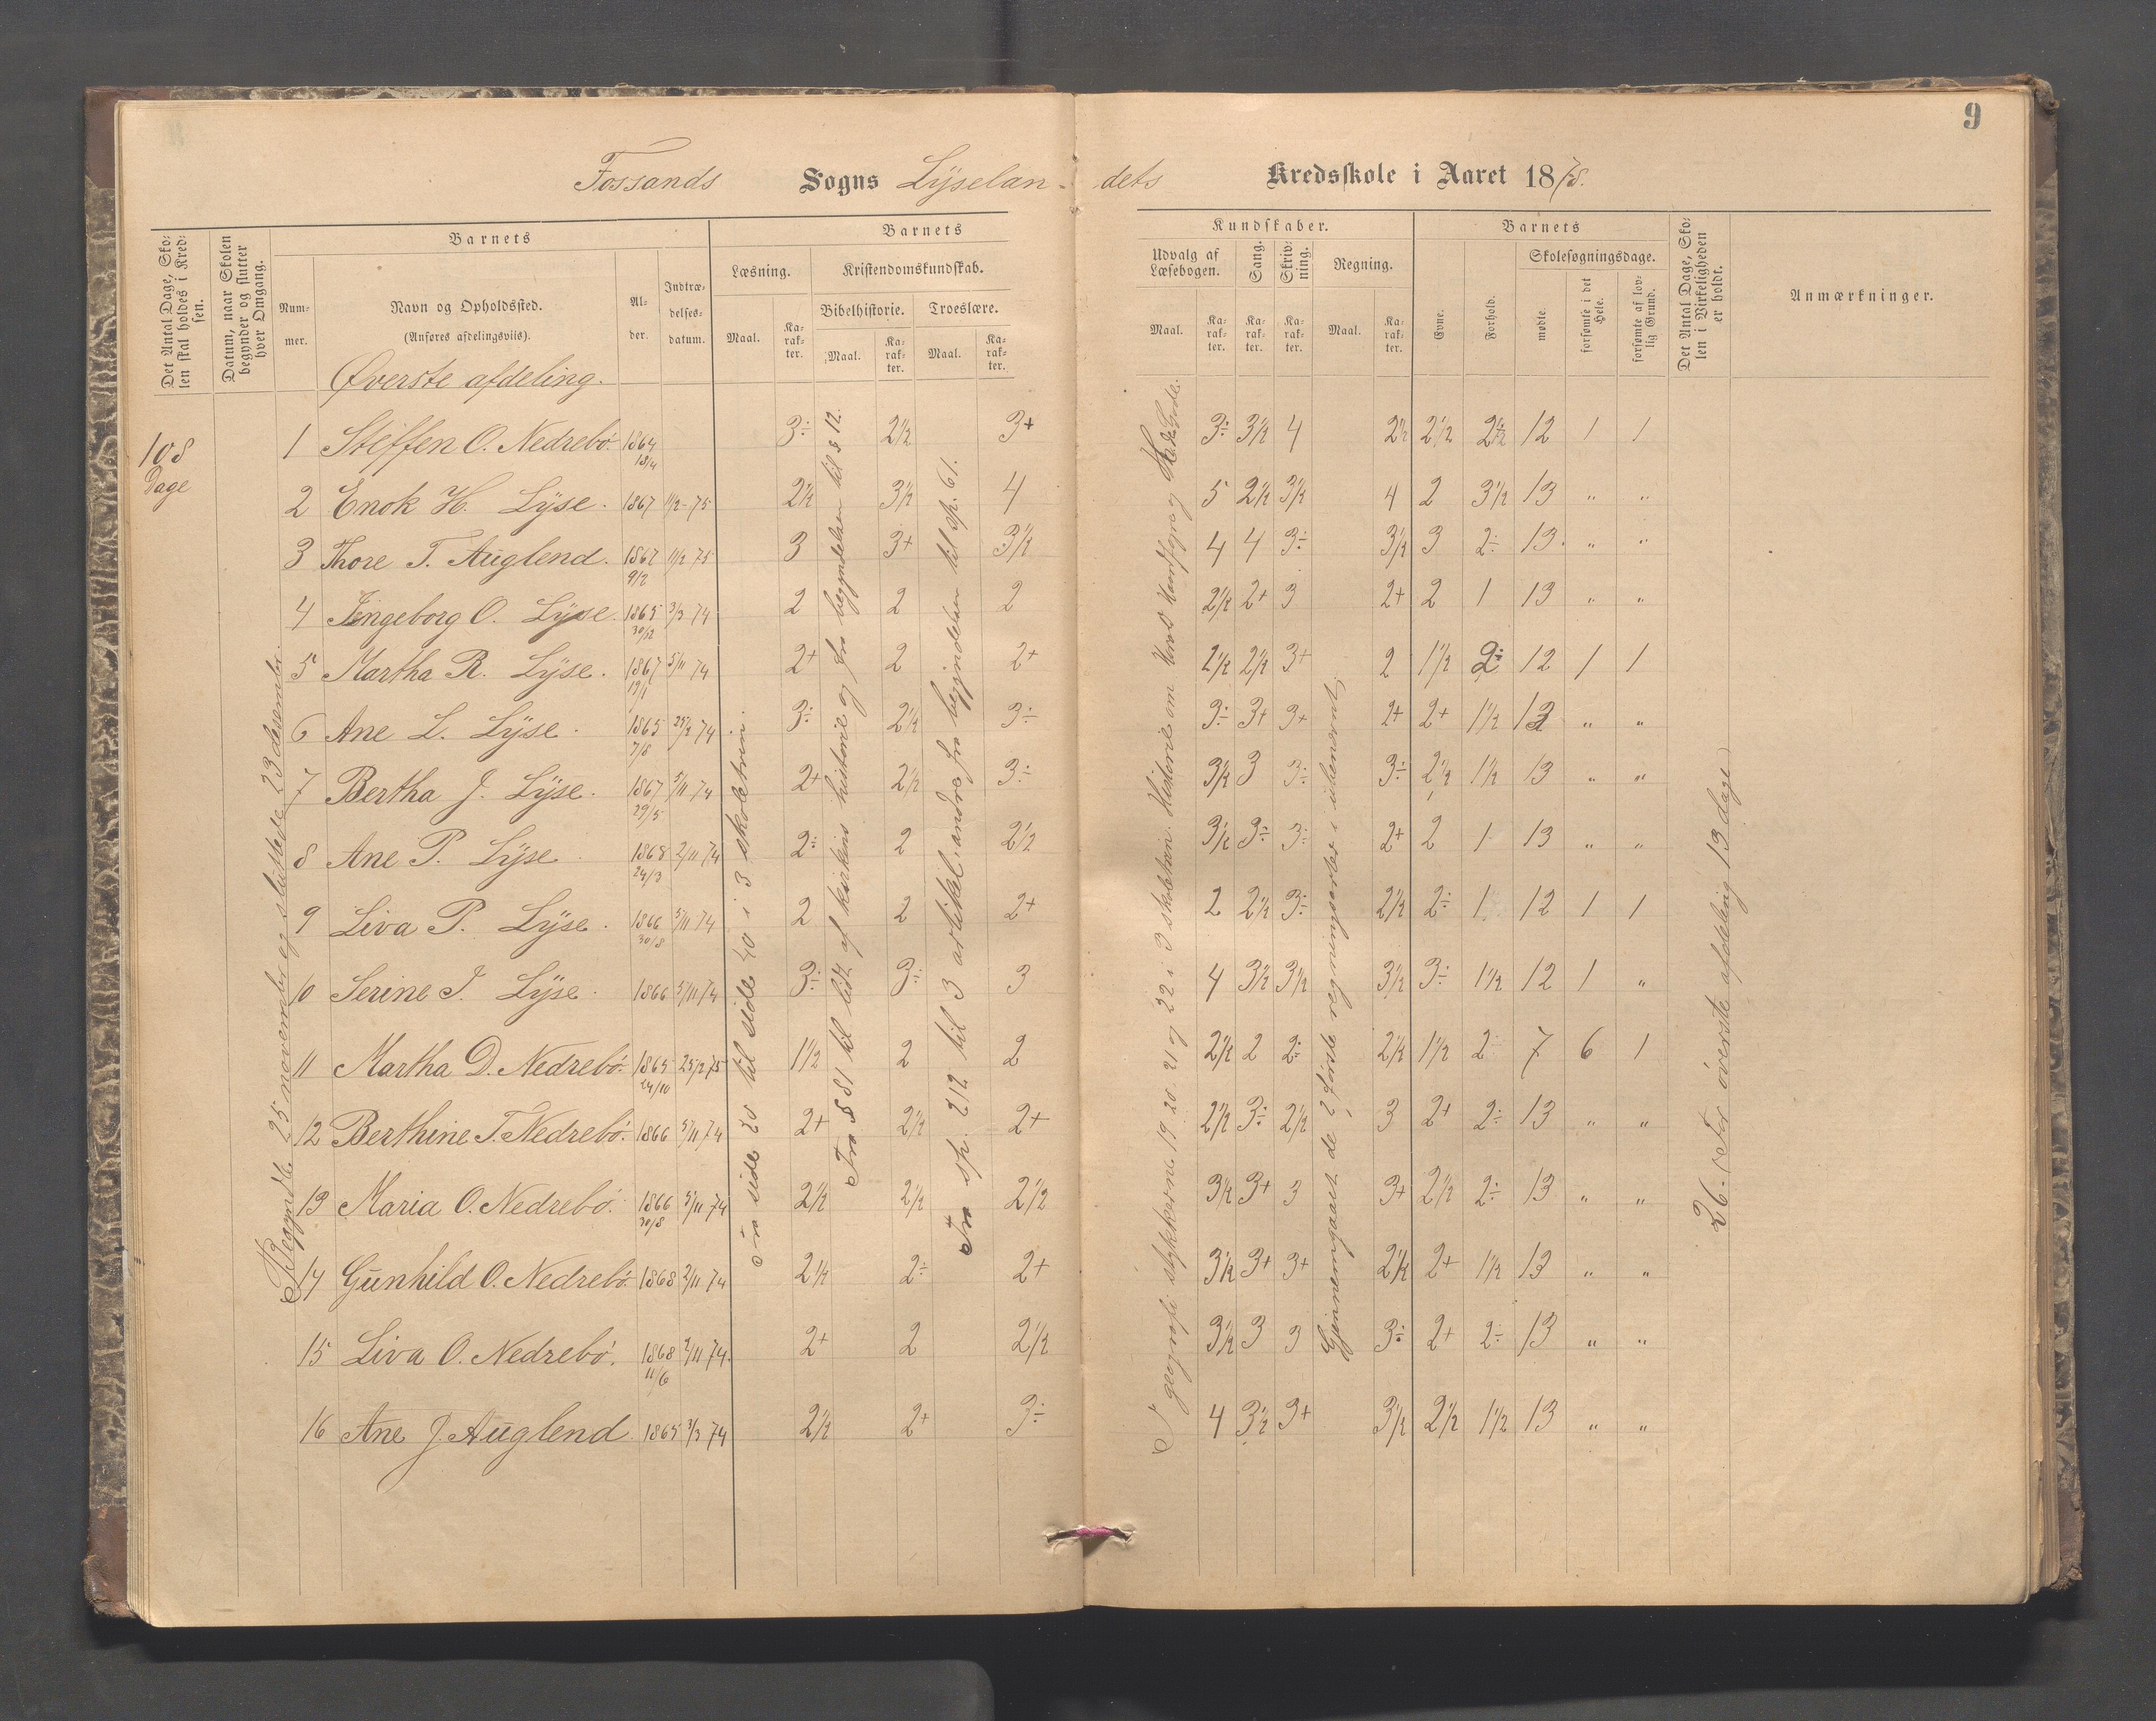 9
Fossands Sogns Lÿselan- dets Kredsskole i Aaret 1878.
Det Antal Dage, Skolen skal holdes i Kredsen.
Datum, naar Skolen begynder og slutter hver Omgang.
Barnets
Nummer.
Navn og Opholdssted.
(Anføres afdelingsviis).
Alder.
Indtrædelsesdatum.
Barnets
Læsning.
Maal.
Karakter.
Kristendomskundskab.
Bibelhistorie.
Maal.
Karakter.
Troeslære.
Maal.
Karakter.
Kundskaber.
Udvalg af Læsebogen.
Maal.
Karakter.
Sang.
Karakter.
Skrivning.
Karakter.
Regning.
Maal.
Karakter.
Barnets
Evne.
Forhold.
Skolesøgningsdage.
mødte.
forsømte i det Hele.
forsømte af lovlig Grund.
Det Antal Dage, Skolen i Virkeligheden er holdt.
Anmærkninger.
Øverste afdeling.
108 Dage
Begyndte 25 november og sluttede 23 desember.
Fra side 20 til side 40 i 3 skoletrin.
Fra § 81 til lidt af kirkens historie og fra begyndelsen til § 12.
Fra sp. 212 til 3 artikel, andre fra begyndelsen til sp. 61.
I geografi stykkerne 19 20 21 og 22 i 3 skoletrin. Historie om Harald Haarfagre og
Gjennemgaaet de 2 første regningsarter i
26. (For øverste afdeling 13 dage)
1 Steffen O. Nedrebö. 1864 18/4 3÷ 2½ 3+ 3÷ 3½ 4 2½ 2½ 2½ 12 1 1
2 Enok H. Lÿse. 1867 11/2-75 2½ 3½ 4 5 2½ 3½ 4 2 3½ 13 „ „
3 Thore T. Auglend. 1867 9/2 11/2 75 3 3+ 3½ 4 4 3÷ 3½ 3 2÷ 13. „ „
4 Ingeborg O. Lÿse. 1865 30/12 3/3 74 2 2 2 2½ 2+ 3 2+ 2 1 13 „ „
5 Martha R. Lÿse. 1867 19/1 5/11 74 2+ 2 2+ 2½ 2½ 3+ 2 1½ 2÷ 12 1 1
6 Ane L. Lÿse. 1865 7/8 25/2 74 3÷ 2½ 3÷ 3÷ 3+ 3+ 2+ 2+ 1½ 13 „ „
7 Bertha J. Lÿse. 1867 29/5 5/11 74 2+ 2½ 3÷ 3½ 3 3÷ 3÷ 2½ 1½ 13 „ „
8 Ane P. Lÿse 1868 24/3 2/11 74 2÷ 2 2½ 3½ 3÷ 3÷ 2+ 2 1 13 „ „
9 Liva P. Lÿse. 1866 30/8 5/11 74 2 2 2+ 2 2½ 3÷ 2½ 2÷ 1 12 1 1
10 Serine I. Lÿse. 1866 5/11 74 3÷ 3÷ 3 4 3½ 3½ 3½ 3÷ 1½ 12 1 „
11 Martha D. Nedrebö. 1865 24/10 25/2 75 1½ 2 2 2½ 2 2÷ 2½ 1½ 2÷ 7 6 1
12 Berthine T. Nedrebö. 1866 5/11 74 2+ 2½ 2+ 2½ 3÷ 2½ 3 2+ 2÷ 13 „ „
13 Maria O. Nedrebö. 1866 30/8 5/11 74 2½ 2½ 2½ 3½ 3+ 3 3+ 2½ 2÷ 13 „ „
14 Gunhild O. Nedrebö. 1868 2/11 74 2½ 2÷ 2+ 3½ 3+ 3+ 2½ 2+ 1½ 13 „ „
15 Liva O. Nedrebö. 1868 11/6 2/11 74. 2+ 2 2½ 3½ 3 3 3÷ 2+ 2÷ 13 „ „
16 Ane J. Auglend 1865 3/3 74 2½ 2+ 3÷ 4 3½ 3+ 3½ 2½ 1½ 13 „ „